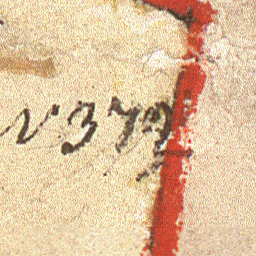 N 379